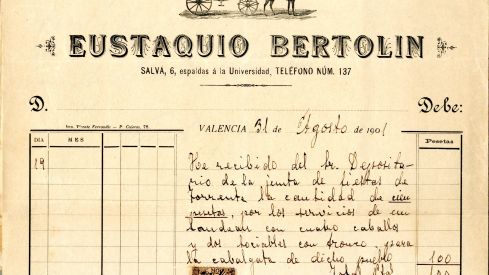 EUSTAQUIO BERTOLIN
SALVA, 6, espaldas á la Universidad, TELÉFONO NÚM. 137
D. Debe:
Imp. Vicente Ferrandis.- P. Cajeros, 75. VALENCIA 31 de Agosto de 1901
DIA MES Pesetas
29 He recibido del Sr. Deposita-
rio de la junta de fiestas de
torrente la cantidad de cien
pesetas, por los servicios de un
landeau con cuatro caballos
y dos sociables con tronco, para
la cabalgata de dicho pueblo 100